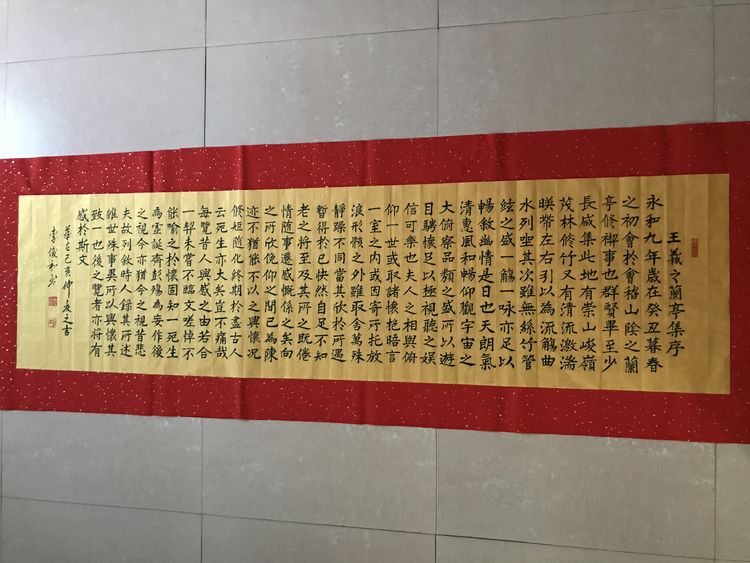 王羲之蘭亭集序
永和九年歲在癸丑暮春
之初會於會稽山陰之蘭
亭修禊事也群賢畢至少
長咸集此地有崇山峻嶺
茂林修竹又有清流激湍
暎帶左右引以為流觴曲
水列坐其次雖無絲竹管
絃之盛一觴一咏亦足以
暢敘幽情是日也天朗氣
清惠風和暢仰觀宇宙之
大俯察品類之盛所以遊
目騁懷足以極視聽之娛
信可樂也夫人之相與俯
仰一世或取諸懷抱晤言
一室之內或因寄所托放
浪形骸之外雖取舍萬殊
靜躁不同當其欣於所遇
暫得於己快然自足不知
老之將至及其所之既倦
情隨事遷感慨係之矣向
之所欣俛仰之間已為陳
迹不猶能不以之興懷況
修短隨化終期於盡古人
云死生亦大矣豈不痛哉
每覽昔人興感之由若合
一契未嘗不臨文嗟悼不
能喻之於懷固知一死生
為虛誕齊彭殤為妄作後
之視今亦猶今之視昔悲
夫故列敘時人錄其所述
雖世殊事異所以興懷其
致一也後之覽者亦將有
感於斯文
歲在己亥仲夏之吉
李俊和書